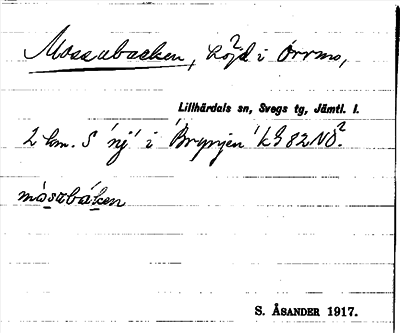 Mossabacken, höjd i Orrmo,
Lillhärdals sn, Svegs tg, Jämtl. l.
2 km. S 'nj' i 'Brynjen' k 82 NO².
måssbáken
S. ÅSANDER 1917.